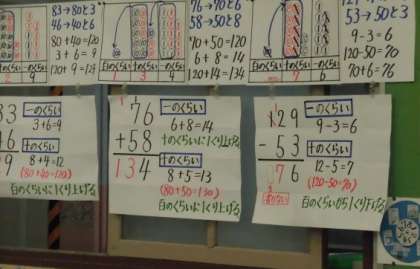 83→80と3
46→40と6
80+40=120
3+6=9
120+9=129
2
9
1
3
4
76→70と6
58→50と8
70+50=120
6+8=14
120+14=134
7
6
53→50と3
9-3=6
120-50=70
70+6=76
83
一のくらい
3+6=9
十のくらい
8+4=12
(80+40=120)
百のくらいに1くり上げる
76
+58
134
一のくらい
6+8=14
十のくらいに1くり上げる
十のくらい
8+5=13
(80+50=130)
百のくらいに1くり上げる
129
-53
76
一のくらい
9-3=6
十のくらい
12-5=7
(120-50=70)
百のくらいから1くり下げる